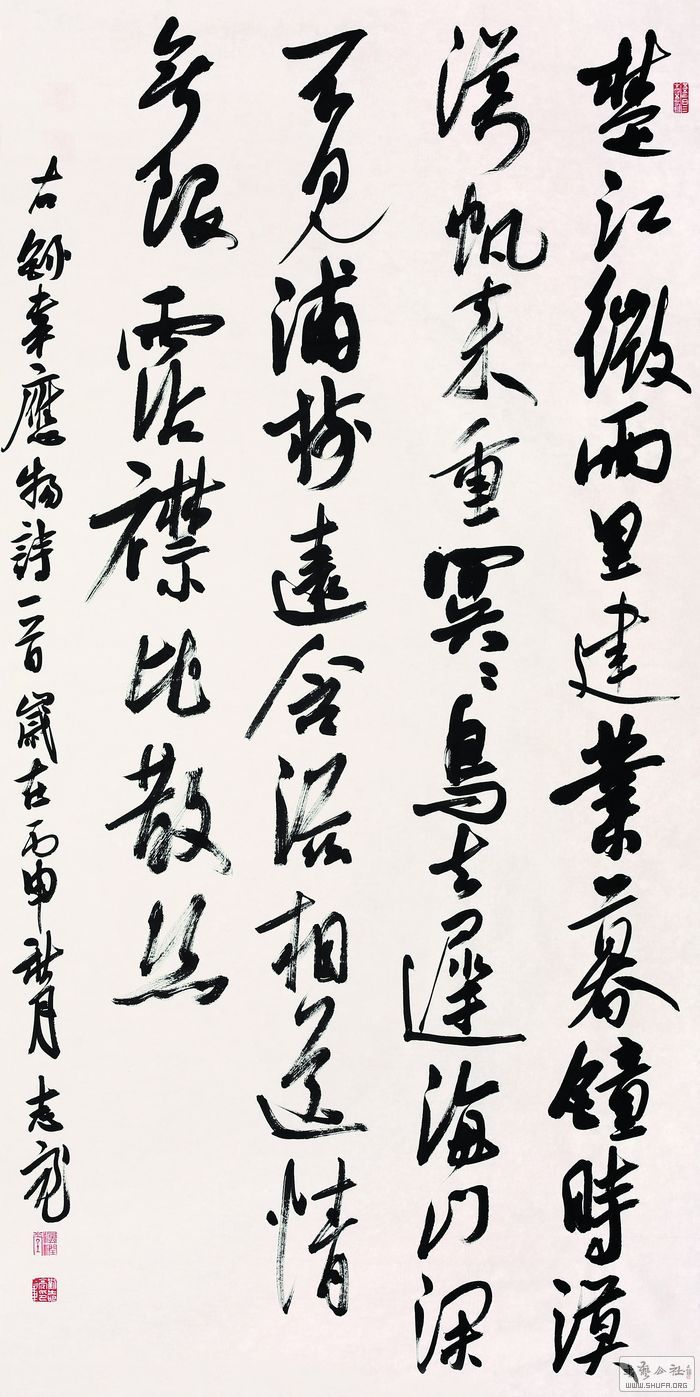 楚江微雨里建業暮鐘時漠
漠帆来重冥〻鳥去遲海門深
不見浦樹遠含滋相送情
無限霑襟比散絲
右錄韋應物詩一首歲在丙申秋月志龍
書藝公社
WWW.SHUFA.ORG